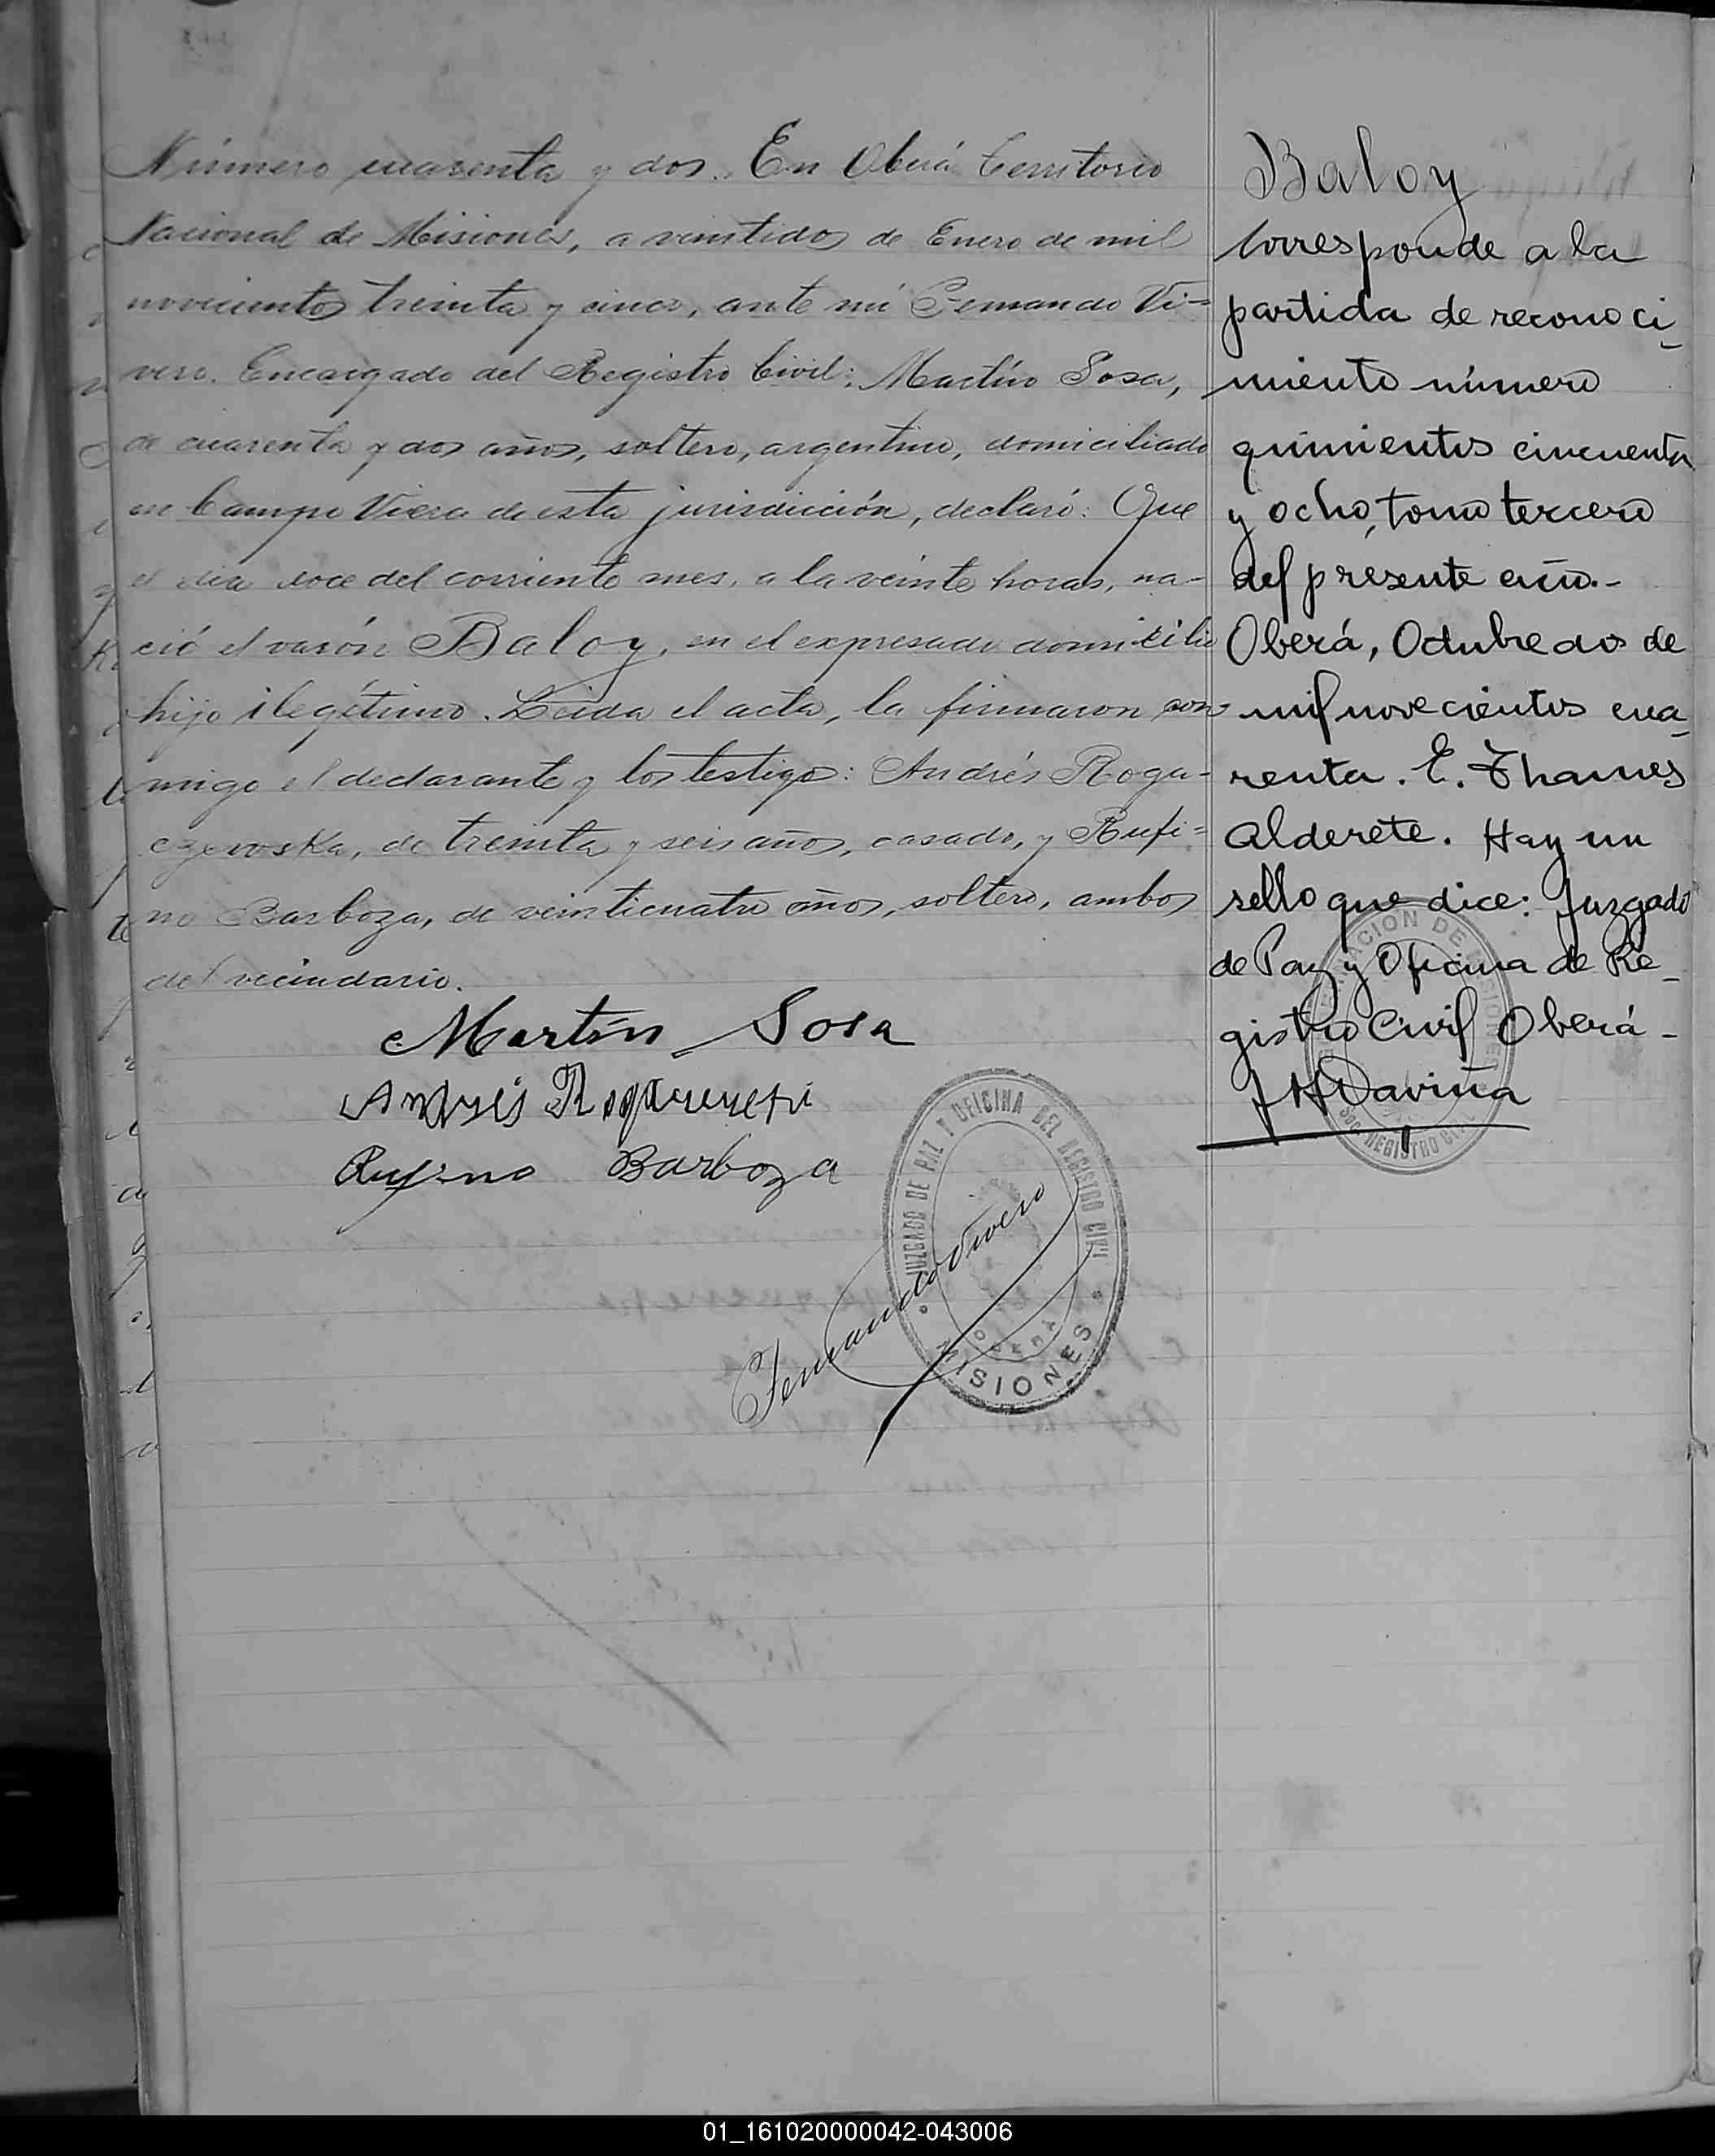 Número cuarenta y dos. En Oberá Territorio
Nacional de Misiones, a veintidos de Enero de mil
novecientos treinta y cinco, ante mí Fernando Vi=
vero. Encargado del Registro Civil: Martín Sosa,
de cuarenta y dos años, soltero, argentino, domiciliado
en Campo Viera de esta jurisdicción, declaró: Que
el dia doce del corriente mes, a la veinte horas, na-
ció el varón Baloy, en el expresado domicilio
hijo ilegítimo. Leida el acta, la firmaron con
migo el declarante y los testigos: Andrés Roga-
czewska, de treinta y seis años, casado, y Rufi=
no Barboza, de veinticuatro años, soltero, ambos
del vecindario.
Martín Sosa
Andrés
Rufino Barboza
Fernando Vivero
JUZGADO DE PAZ Y OFICINA DEL REGISTRO CIVIL
OBERÁ
MISIONES
Baloy
Corresponde a la
partida de reconoci-
miento número
quinientos cincuenta
y ocho, tomo tercero
del presente año.-
Oberá, Octubre dos de
mil novecientos cua-
renta. E. Thames
Alderete. Hay un
sello que dice: Juzgado
de Paz y Oficina de Re-
gistro Civil Oberá-
J H Daviña
REGISTRO CIVIL
01_161020000042-043006